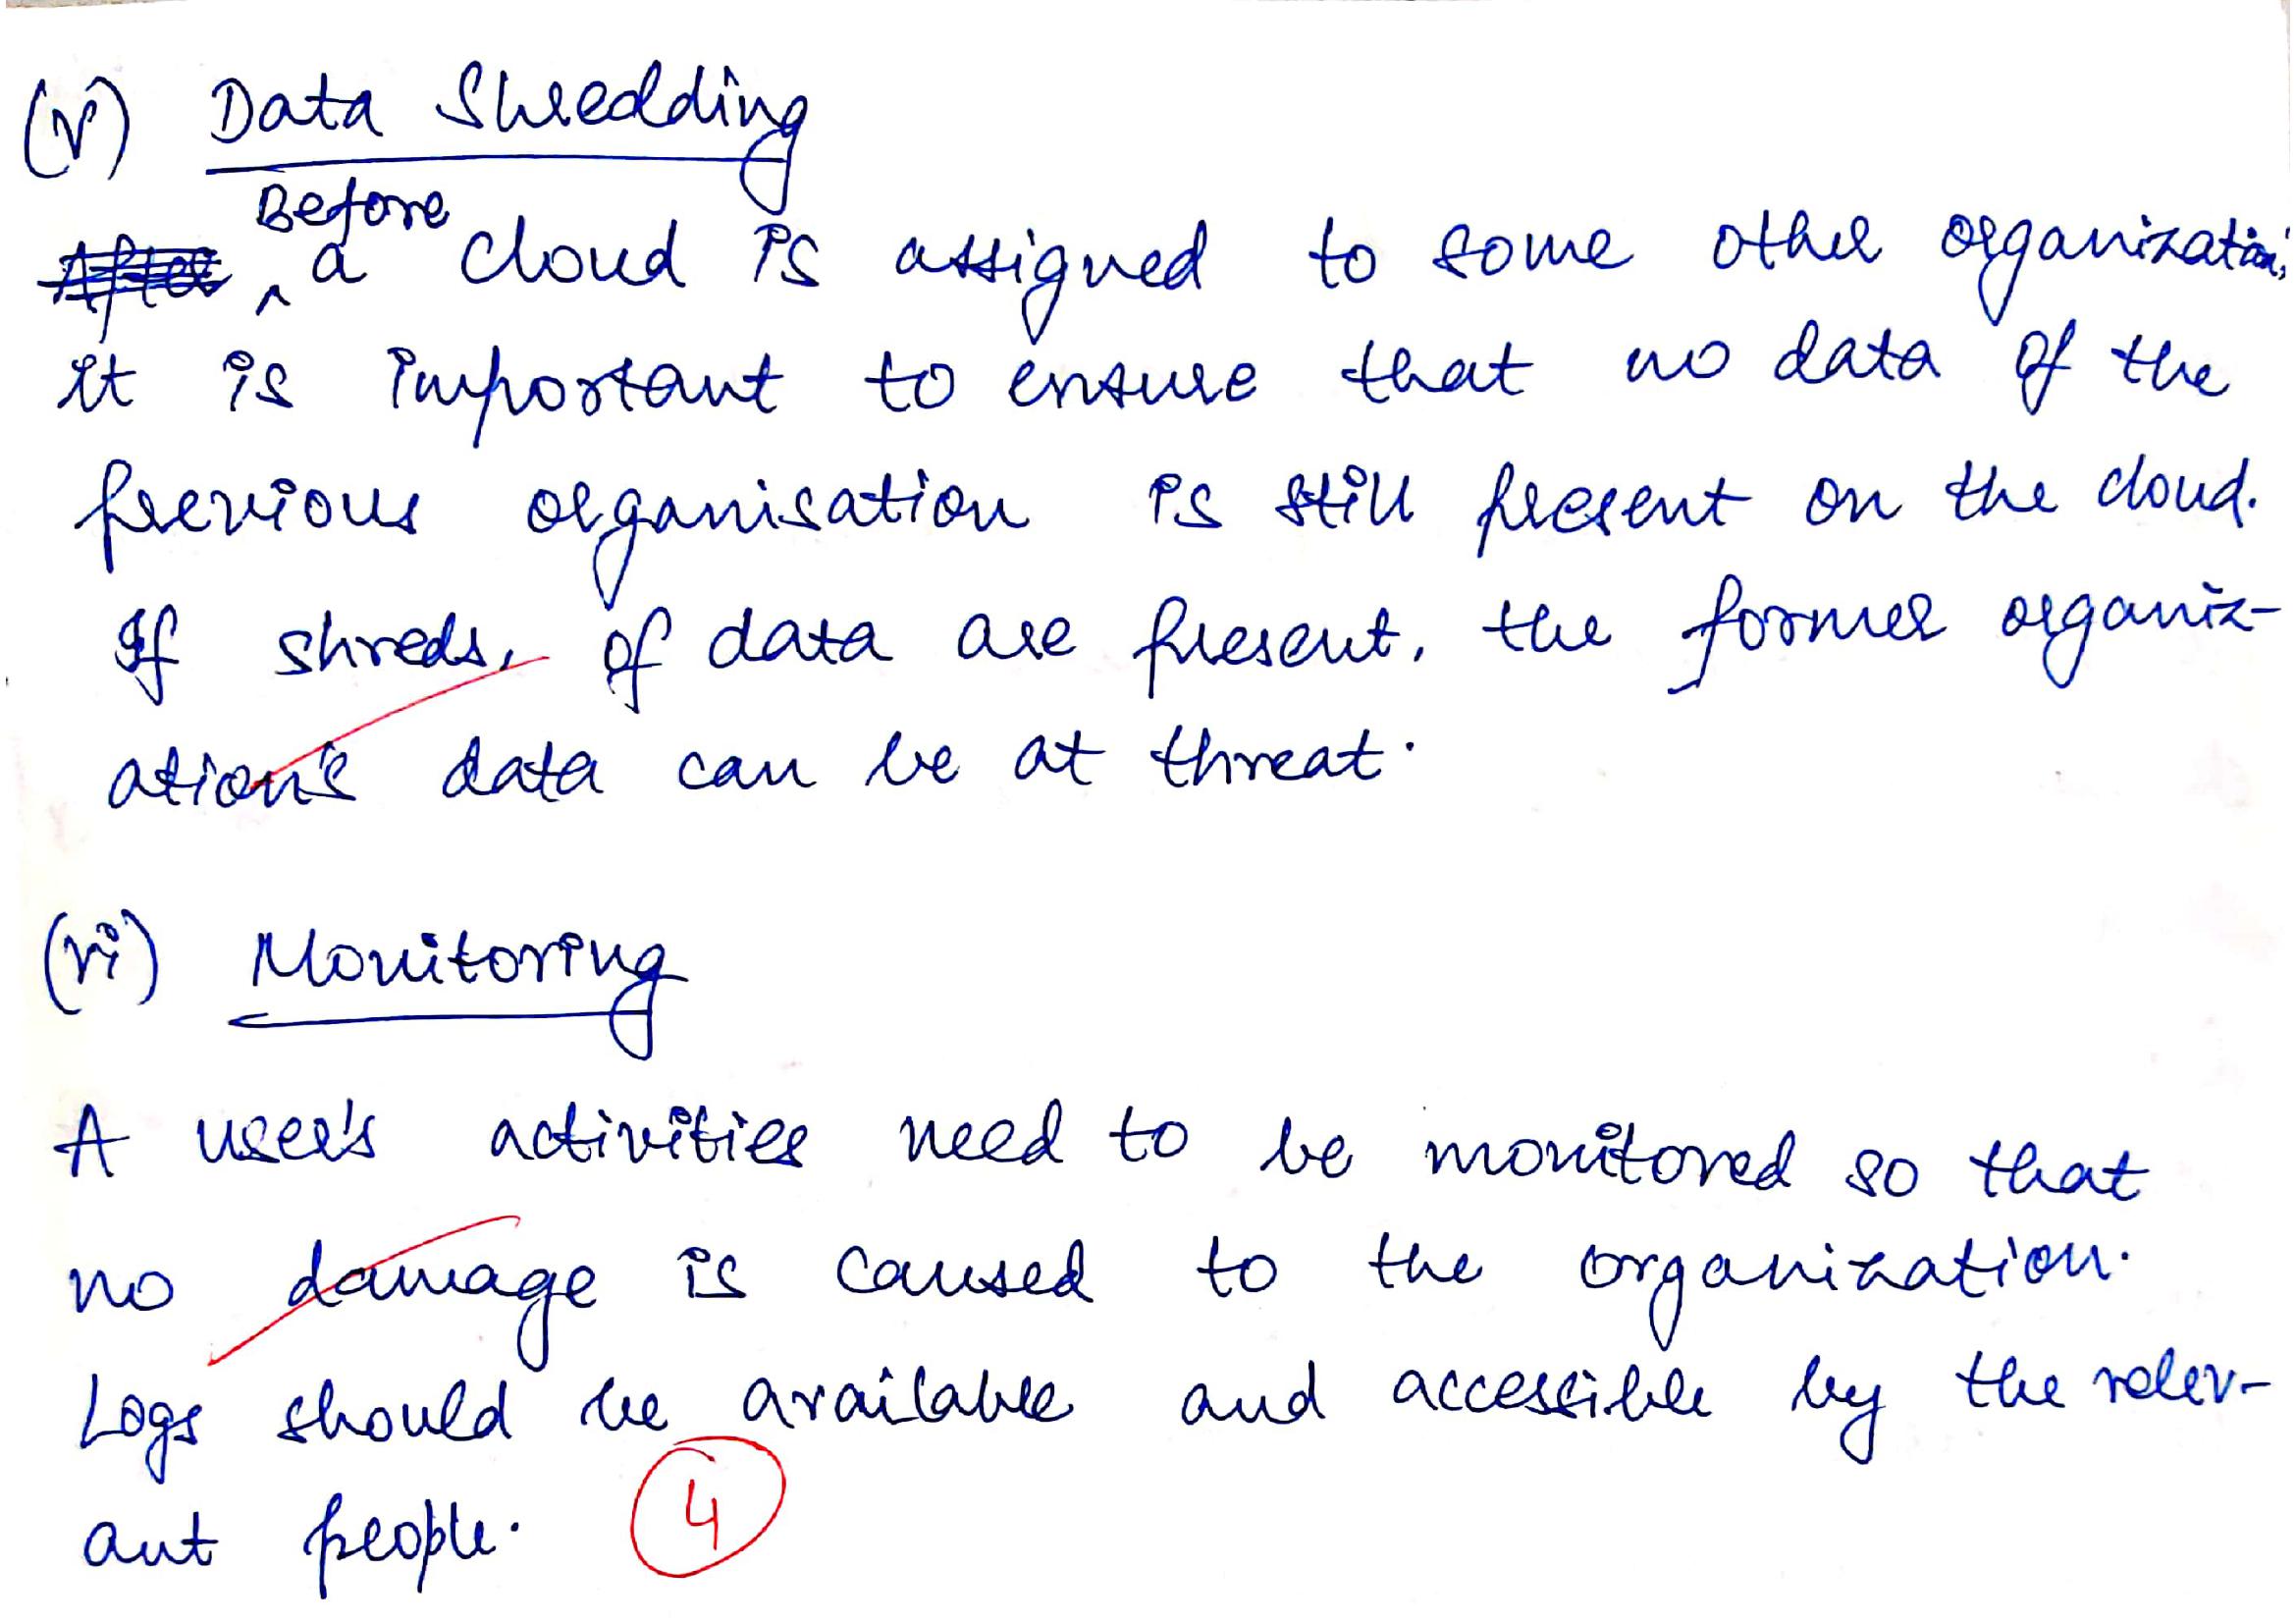 (v) Data Shredding
Before
After ^ a cloud is assigned to some other organization,
it is important to ensure that no data of the
previous organisation is still present on the cloud.
If shreds, of data are present, the former organiz-
ation's data can be at threat.
(vi) Monitoring
A user's activities need to be monitored so that
no damage is caused to the organization.
Logs should be available and accessible by the relev-
ant people.
4